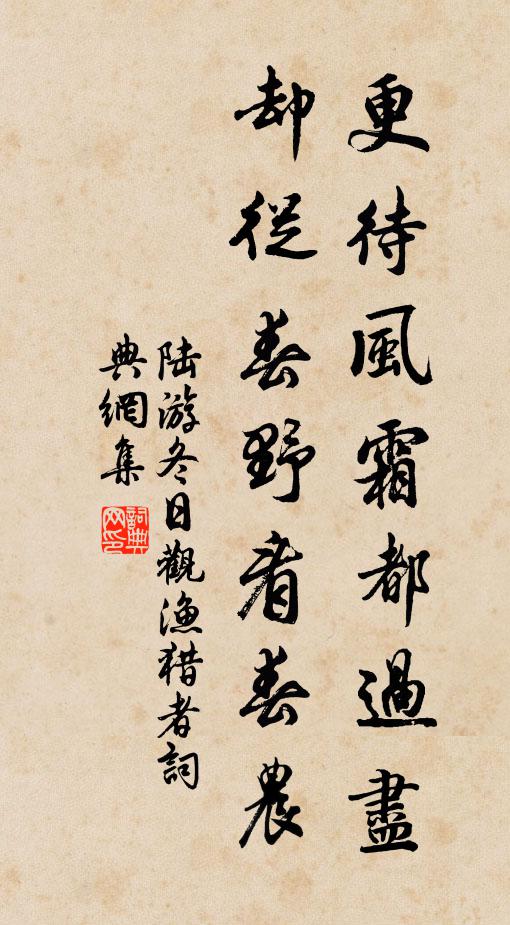 更待風霜都過盡
却從春野看春農
陆游冬日觀漁猎者詞
典網集
詞典網印